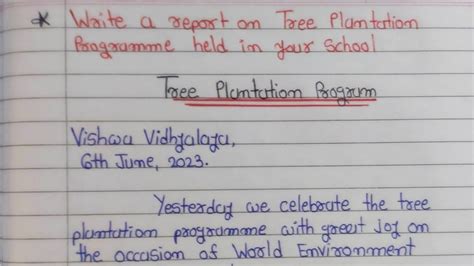 * Write a report on Tree Plantation
Programme held in your School
Tree Plantation Program
Vishwa Vidhyalaya,
6th June, 2023.
Yesterday we celebrate the tree
plantation programme with great Joy on
the occasion of World Environment